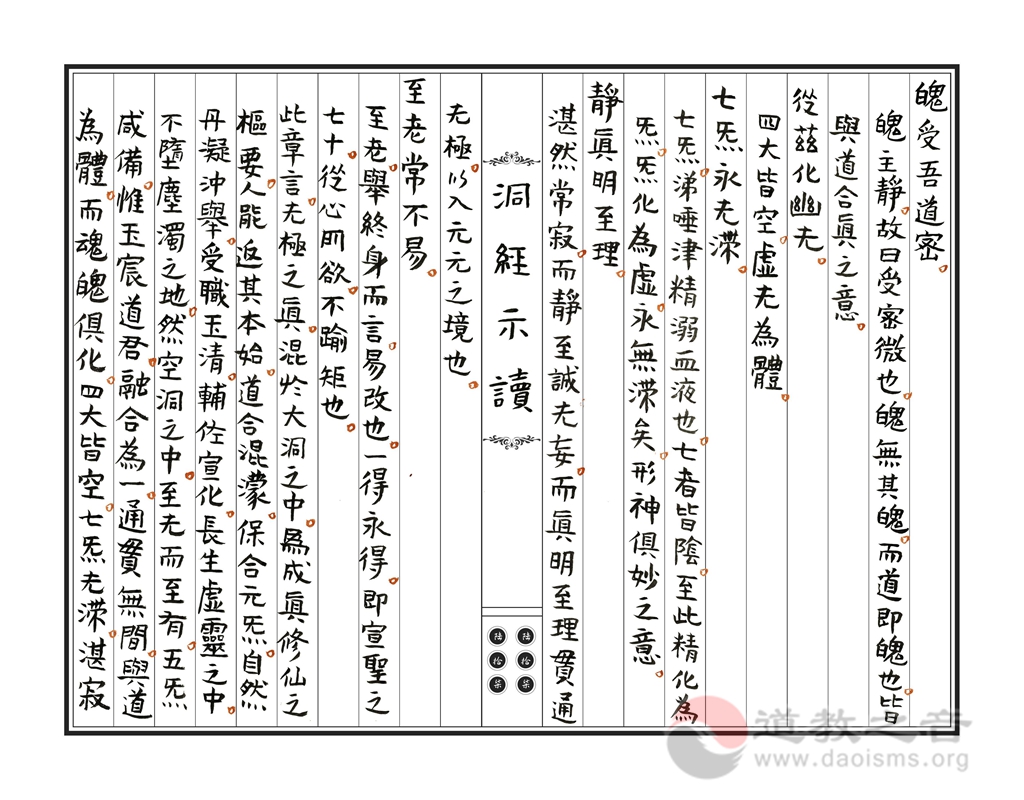 魄受吾道密
魄主靜故曰受密微也魄無其魄而道即魄也皆
與道合真之意
從茲化幽无
四大皆空虛无為體
七炁永无滯
七炁涕唾津精溺血液也七者皆陰至此精化為
炁炁化為虛永無滯矣形神俱妙之意
靜真明至理
湛然常寂而靜至誠无妄而真明至理貫通
洞經示讀
陸拾柒
陸拾柒
无極以入元元之境也
至老常不易
至老舉終身而言易改也一得永得即宣聖之
七十從心所欲不踰矩也
此章言无極之真混於大洞之中為成真修仙之
樞要人能返其本始道合混濛保合元炁自然
丹凝沖舉受職玉清輔佐宣化長生虛靈之中
不墮塵濁之地然空洞之中至无而至有五炁
咸備惟玉宸道君融合為一通貫無間與道
為體而魂魄俱化四大皆空七炁无滯湛寂
道教之音
www.daoisms.org